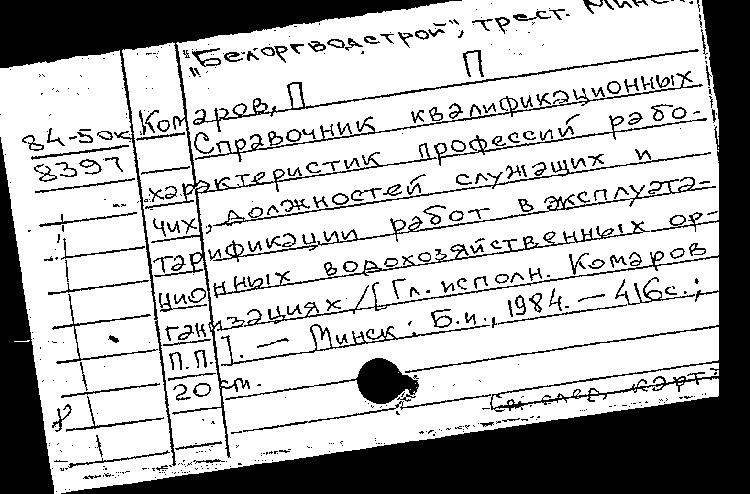 "Белоргводстрой", трест. Минск.
Комаров, П П
84-5ок
8397
Справочник квалификационных
характеристик профессий рабо-
чих, должностей служащих и
тарификации работ в эксплуата-
ционных водохозяйственных ор-
ганизациях /[Гл. исполн. Комаров
П.П.]. — Минск: Б.и., 1984. — 416с.;
20 см.
См. след. карт.